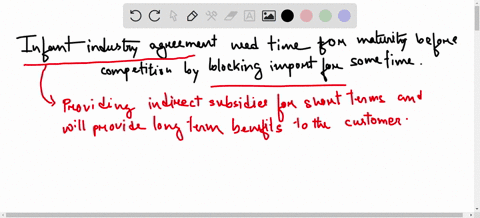 Infant industry agreement need time for maturity before
competition by blocking import for some time.
Providing indirect subsidies for short terms and
will provide long term benefits to the customer.